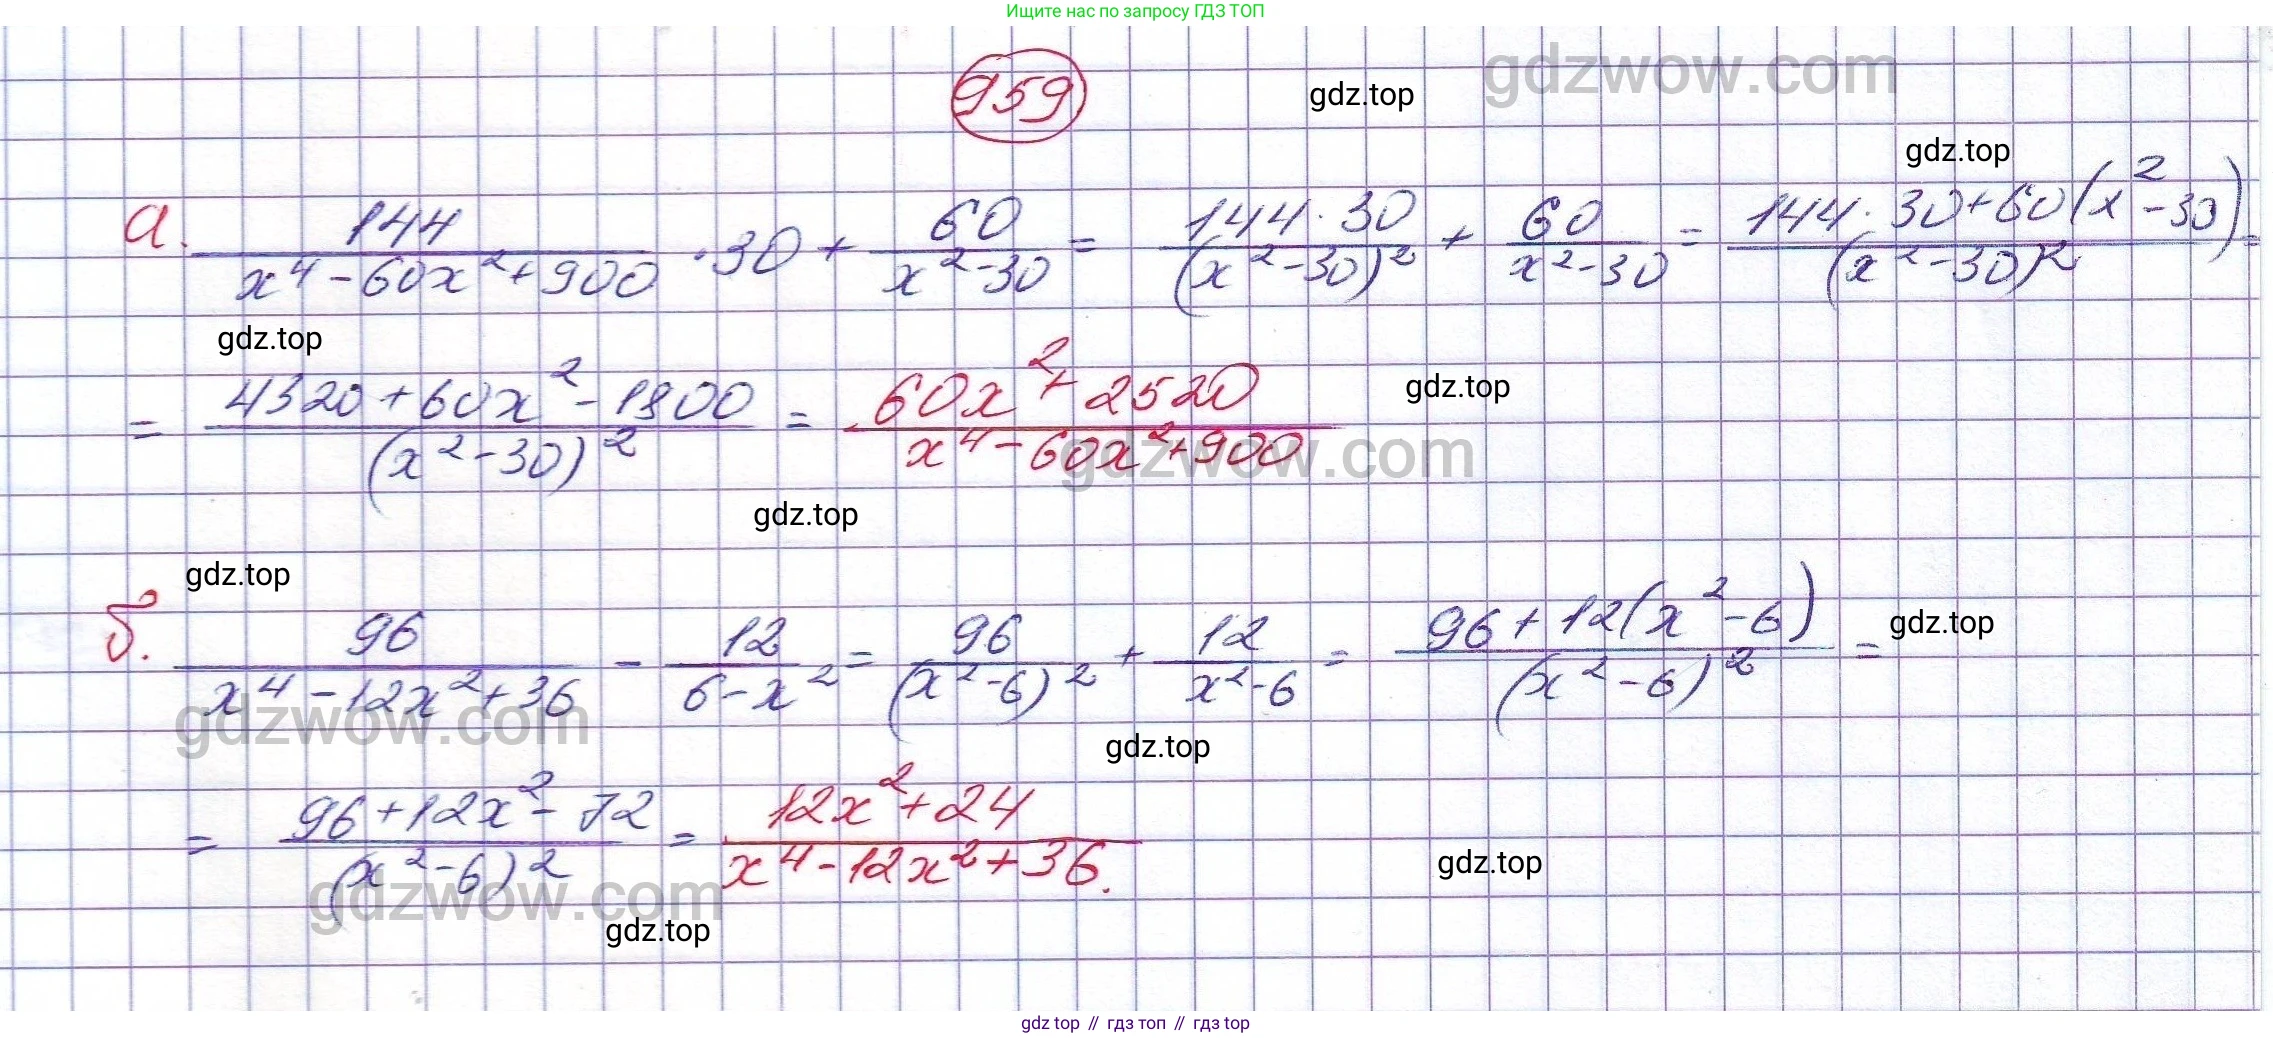 Ищите нас по запросу ГДЗ ТОП
959
gdz.top
gdzwow.com
gdz.top
а. 144/(x⁴-60x²+900) · 30 + 60/(x²-30) = 144·30/(x²-30)² + 60/(x²-30) = (144·30+60(x²-30))/(x²-30)² =
gdz.top
= (4320+60x²-1800)/(x²-30)² = (60x²+2520)/(x⁴-60x²+900)
gdz.top
gdzwow.com
gdz.top
gdz.top
б. 96/(x⁴-12x²+36) - 12/(6-x²) = 96/(x²-6)² + 12/(x²-6) = (96+12(x²-6))/(x²-6)² =
gdz.top
gdzwow.com
gdz.top
= (96+12x²-72)/(x²-6)² = (12x²+24)/(x⁴-12x²+36).
gdz.top
gdzwow.com
gdz.top
gdz top // гдз топ // gdz top